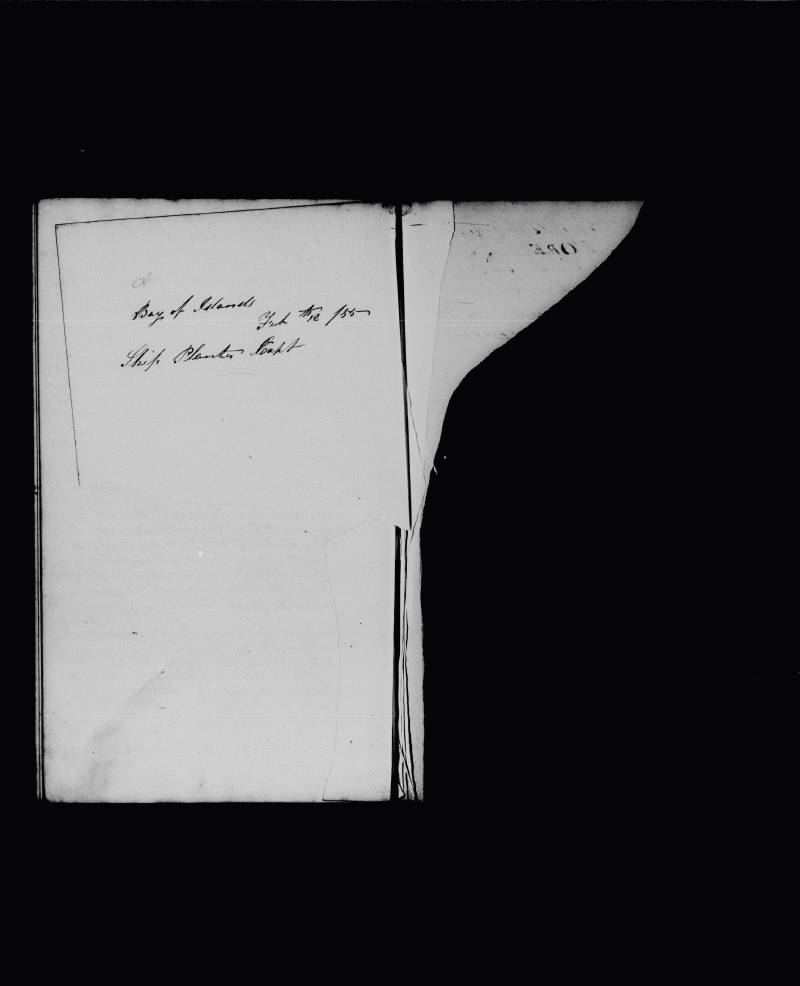 Bay of Islands
Feb th 12 /55
Ship Planter Capt